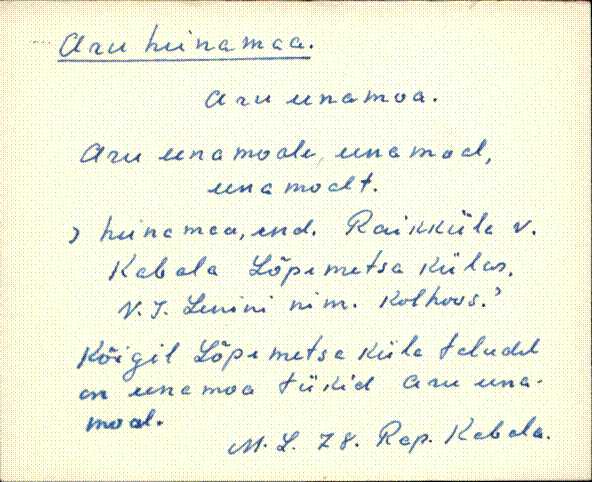 Aru hiinamaa.
Aru einamoa.
Aru einamoale, einamoal,
einamoalt.
› heinamaa, end. Raikküla v.
Kabala Lõpemetsa külas,
V. I. Lenini nim. kolhoos.'
Kõigil Lõpemetsa küla taludel
on einamoa tükid Aru eina-
moal.
M. L. 78. Rap. Kabala.